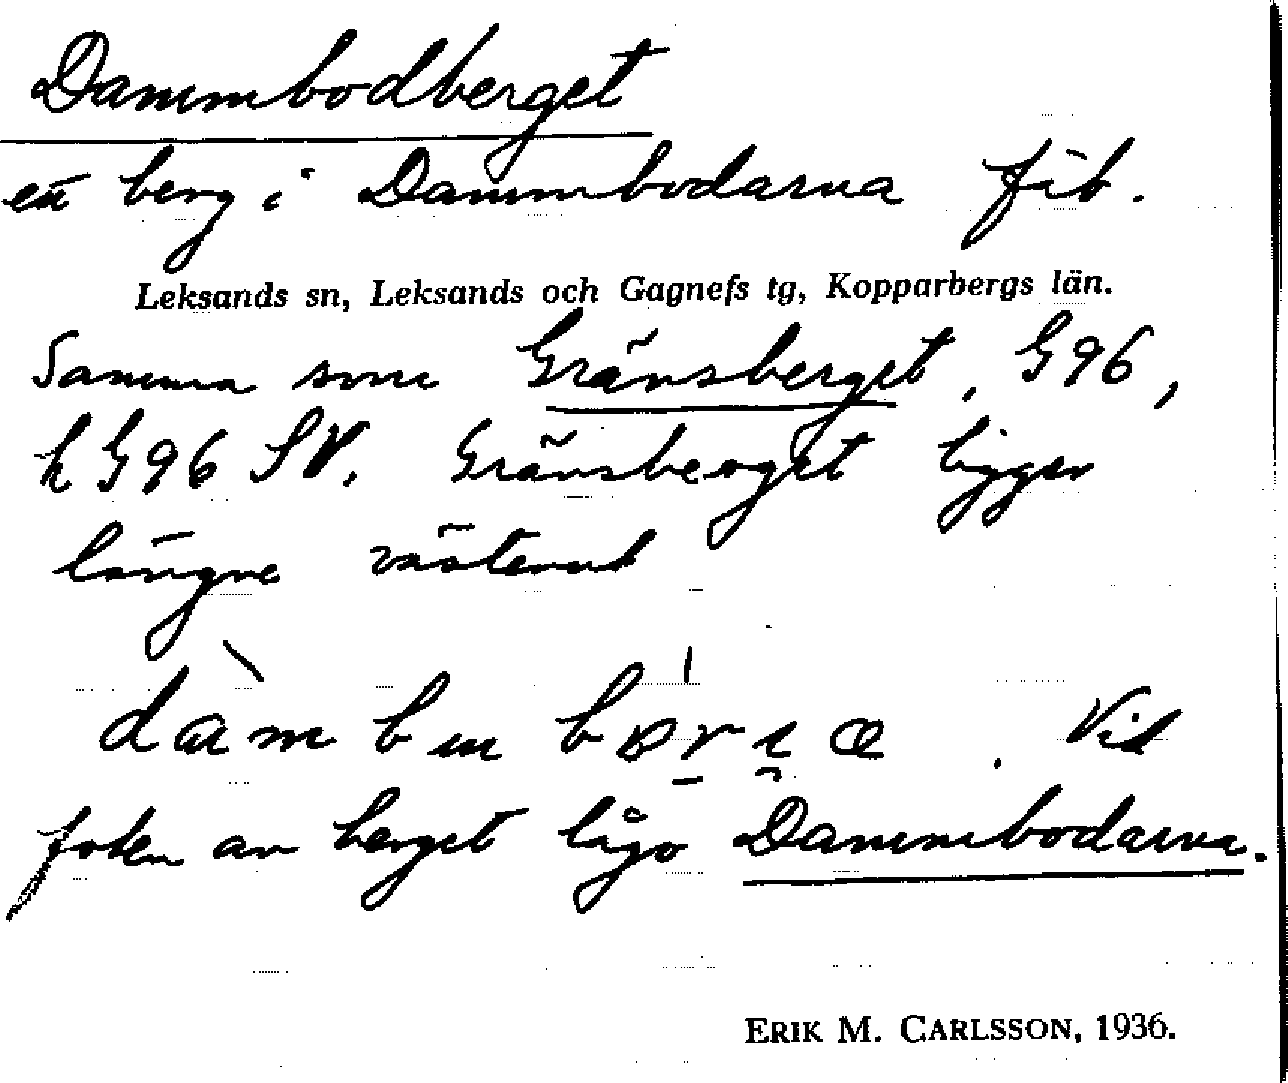 Dammbodberget
ett berg i Dammbodarna fäb.
Leksands sn, Leksands och Gagnefs tg, Kopparbergs län.
Samma som Gränsberget, G96,
k G96 SV. Gränsberget ligger
längre västerut
Vid
foten av berget lågo Dammbodarna.
ERIK M. CARLSSON, 1936.